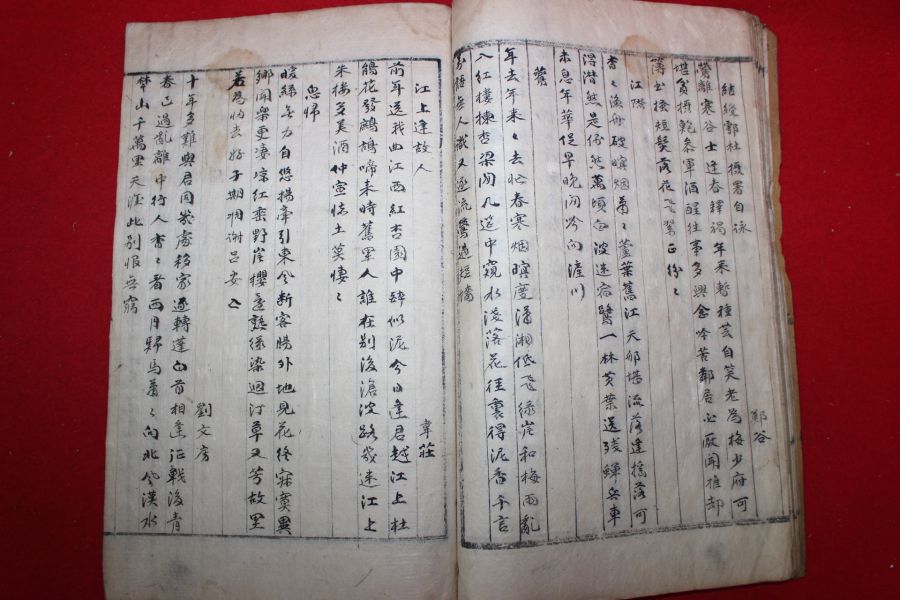 結綬鄠杜攝署自詠
鄭谷
鶯離寒谷士逢春釋褐年來暫種芸自笑老為梅少府可
堪貧攝鮑參軍酒醒往事多興念吟苦鄰居必厭聞推却
簿書搔短髮落花飛絮正紛々
江際
杳々漁舟破暝烟蕭々蘆葉舊江天那堪流落逢搖落可
得潸然是偶然萬頃白波迷宿鷺一林黃葉送殘蟬兵車
未息年華促早晚閒吟向滻川
鷰
年去年來々去忙春寒烟暝度瀟湘低飛綠岸和梅雨亂
入紅樓揀杏梁閒几硯中窺水淺落花徑裏得泥香千言
萬語無人識又逐流鶯過短墻
江上逢故人
韋莊
前年送我曲江西紅杏園中醉似泥今日逢君越江上杜
鵑花發鷓鴣啼來時舊里人誰在別後滄波路幾迷江上
朱樓多美酒仲宣懷土莫悽々
思歸
暖絲無力自悠揚牽引東風斷客腸外地見花終寂寞異
鄉聞樂更凄凉紅垂野岸櫻還熟綠染迴汀草又芳故里
若為歸去好子期惆謝呂安亡
劉文房
十年多難與君同幾處移家逐轉蓬白首相逢征戰後青
春已過亂離中行人杳々看西月歸馬蕭々向北風漢水
楚山千萬里天涯此別恨無窮